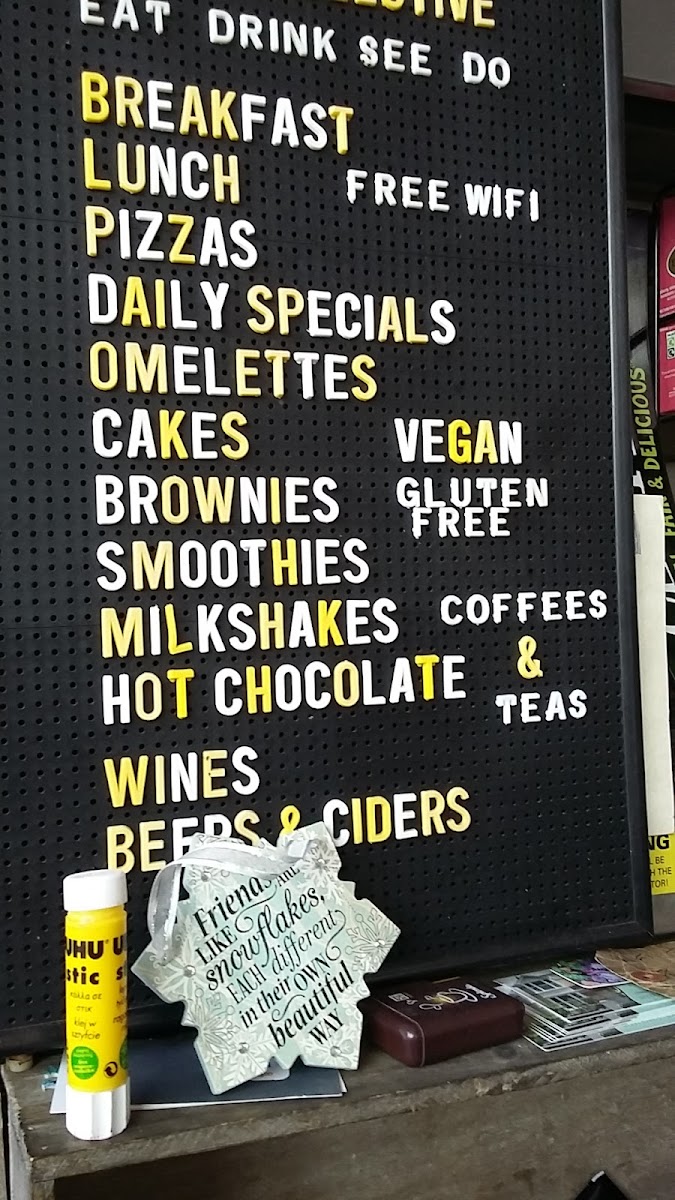 EAT DRINK SEE DO
BREAKFAST
LUNCH
FREE WIFI
PIZZAS
DAILY SPECIALS
OMELETTES
CAKES
VEGAN
BROWNIES
GLUTEN
FREE
SMOOTHIES
MILKSHAKES
COFFEES
&
TEAS
HOT CHOCOLATE
WINES
BEERS & CIDERS
Friends ARE
LIKE
snowflakes,
EACH different
in their OWN
beautiful
WAY
UHU
stic
klej w
sztyfcie
& DELICIOUS